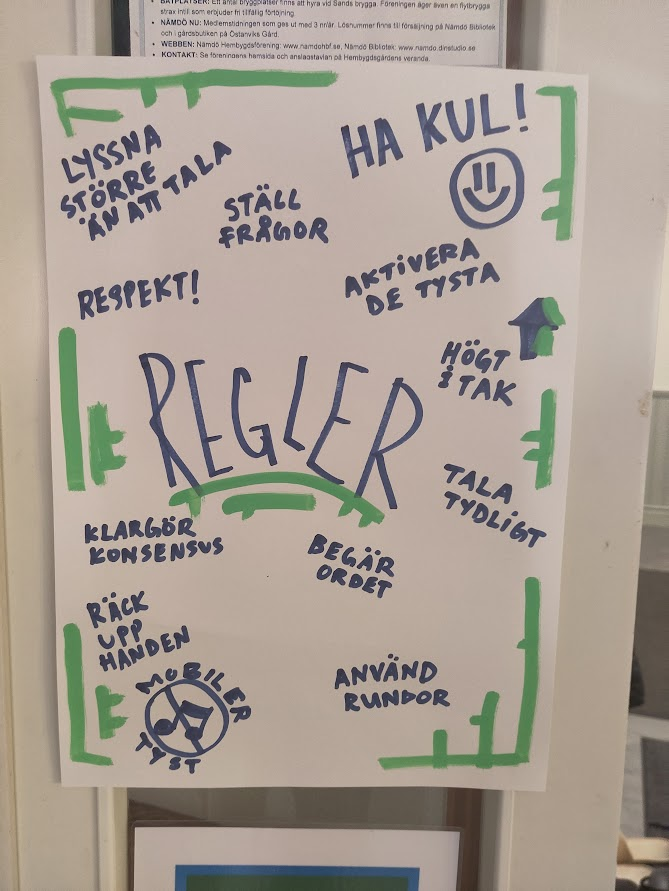 BÅTPLATSER: Ett antal bryggplatser finns att hyra vid Sands brygga. Föreningen äger även en flytbrygga
strax intill som erbjuder fri tillfällig förtöjning.
NÄMDÖ NU: Medlemstidningen som ges ut med 3 nr/år. Lösnummer finns till försäljning på Nämdö Bibliotek
och i gårdsbutiken på Östanviks Gård.
WEBBEN: Nämdö Hembygdsförening: www.namdohbf.se, Nämdö Bibliotek: www.namdo.dinstudio.se
KONTAKT: Se föreningens hemsida och anslagstavlan på Hembygdsgårdens veranda.
LYSSNA
STÖRRE
ÄN ATT TALA
HA KUL!
STÄLL
FRÅGOR
AKTIVERA
DE TYSTA
RESPEKT!
HÖGT
I TAK
REGLER
TALA
TYDLIGT
KLARGÖR
KONSENSUS
BEGÄR
ORDET
RÄCK
UPP
HANDEN
MOBILER
TYST
ANVÄND
RUNDOR